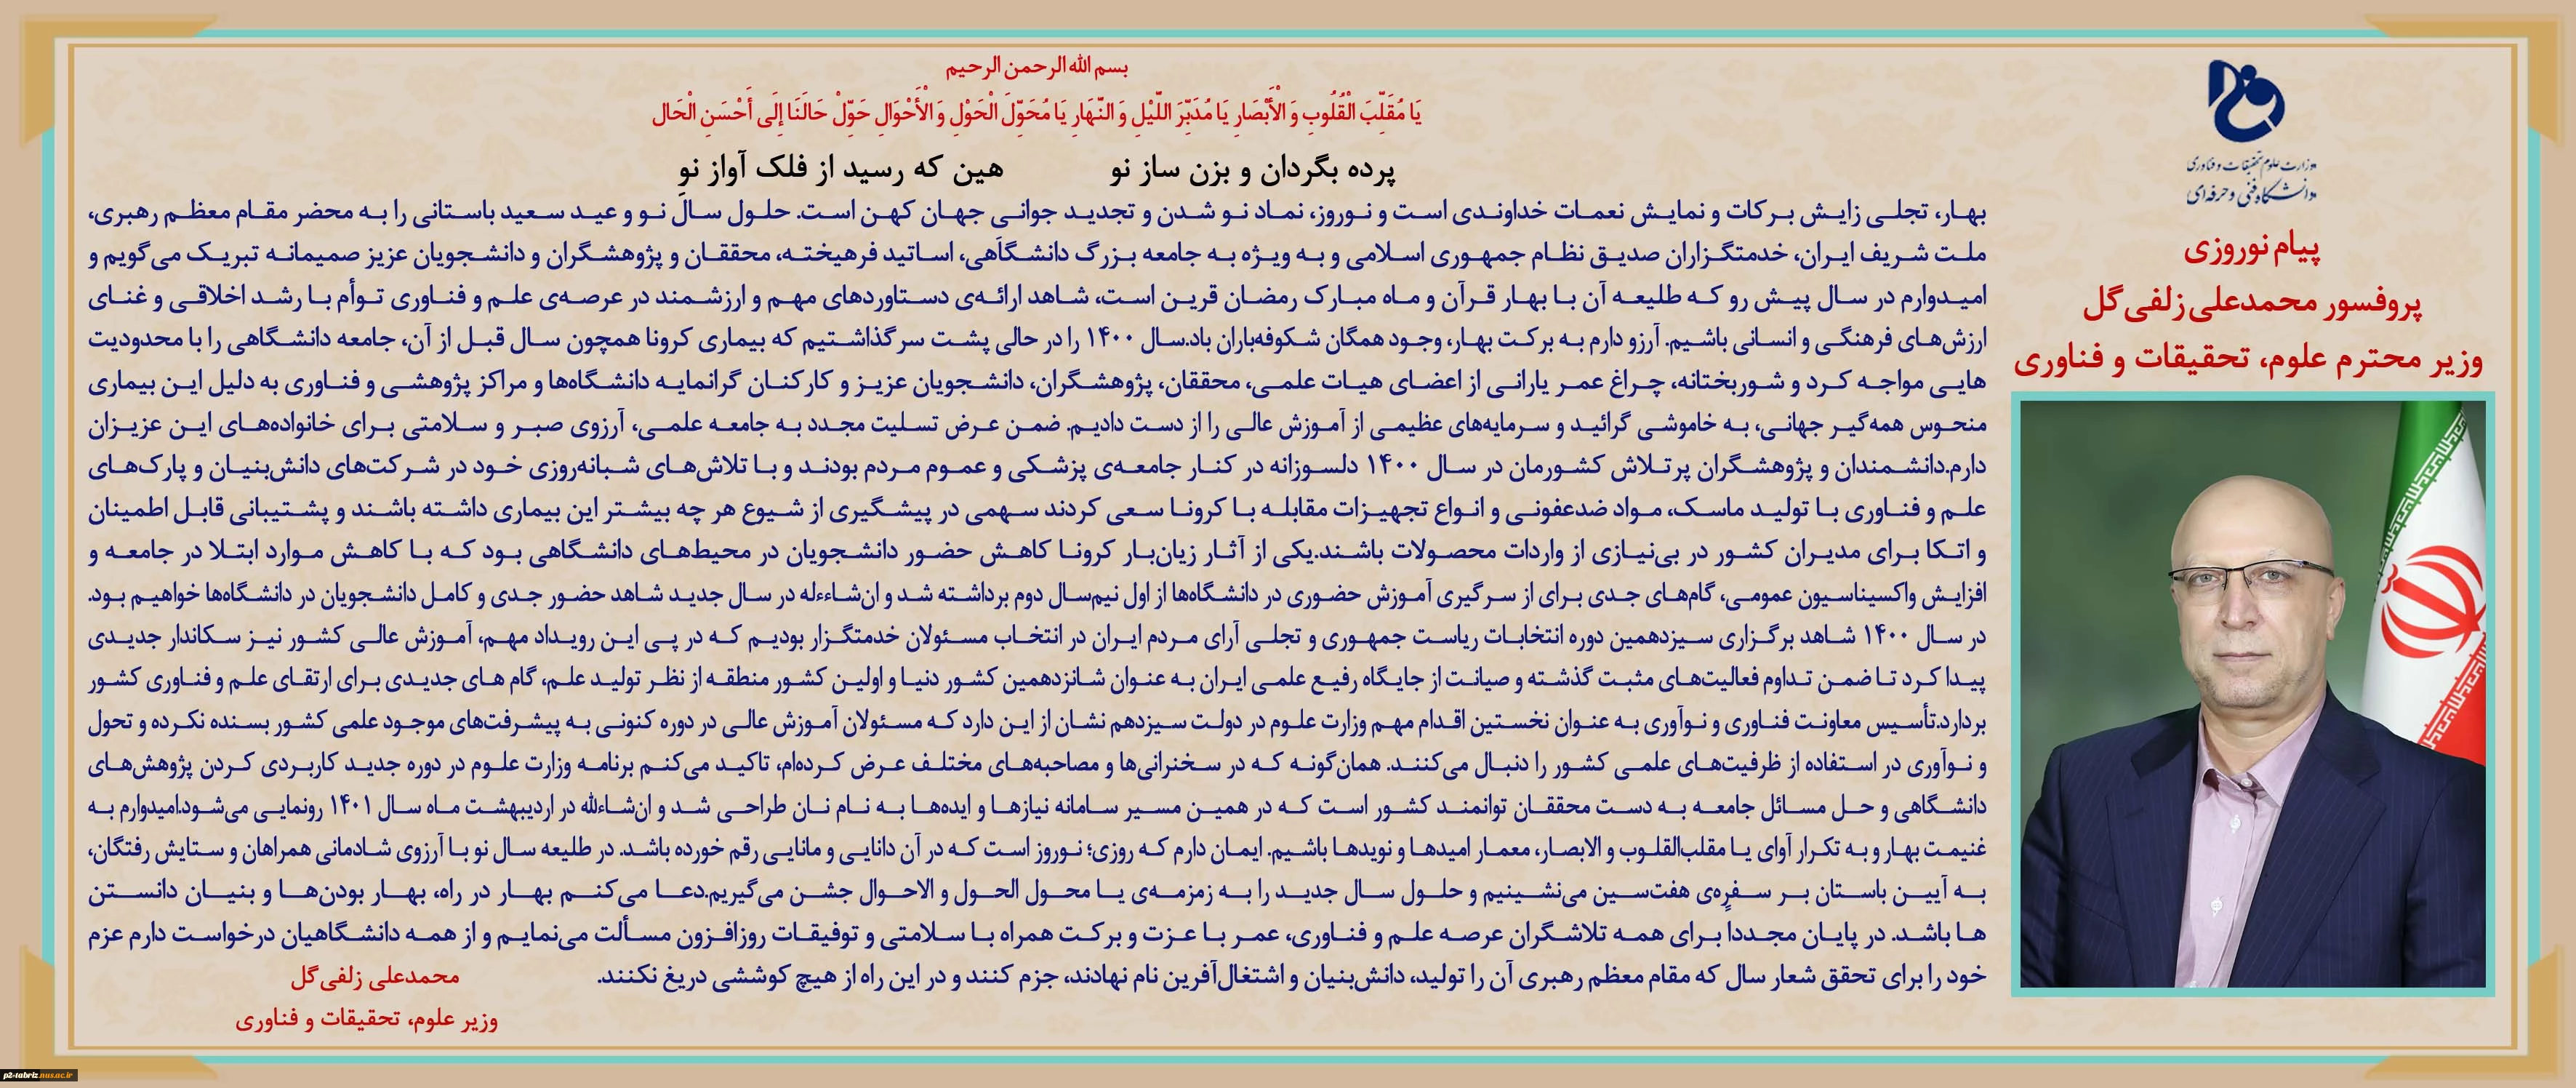 وزارت علوم تحقیقات و فناوری
دانشگاه فنی و حرفه‌ای
پیام نوروزی
پروفسور محمدعلی زلفی گل
وزیر محترم علوم، تحقیقات و فناوری
بسم الله الرحمن الرحیم
یَا مُقَلِّبَ الْقُلُوبِ وَ الْأَبْصَارِ یَا مُدَبِّرَ اللَّیْلِ وَ النَّهَارِ یَا مُحَوِّلَ الْحَوْلِ وَ الْأَحْوَالِ حَوِّلْ حَالَنَا إِلَی أَحْسَنِ الْحَال
پرده بگردان و بزن ساز نو هین که رسید از فلک آواز نو
بهار، تجلی زایش برکات و نمایش نعمات خداوندی است و نوروز، نماد نو شدن و تجدید جوانی جهان کهن است. حلول سال نو و عید سعید باستانی را به محضر مقام معظم رهبری،
ملت شریف ایران، خدمتگزاران صدیق نظام جمهوری اسلامی و به ویژه به جامعه بزرگ دانشگاهی، اساتید فرهیخته، محققان و پژوهشگران و دانشجویان عزیز صمیمانه تبریک می‌گویم و
امیدوارم در سال پیش رو که طلیعه آن با بهار قرآن و ماه مبارک رمضان قرین است، شاهد ارائه‌ی دستاوردهای مهم و ارزشمند در عرصه‌ی علم و فناوری توأم با رشد اخلاقی و غنای
ارزش‌های فرهنگی و انسانی باشیم. آرزو دارم به برکت بهار، وجود همگان شکوفه‌باران باد.سال ۱۴۰۰ را در حالی پشت سر گذاشتیم که بیماری کرونا همچون سال قبل از آن، جامعه دانشگاهی را با محدودیت
هایی مواجه کرد و شوربختانه، چراغ عمر یارانی از اعضای هیات علمی، محققان، پژوهشگران، دانشجویان عزیز و کارکنان گرانمایه دانشگاه‌ها و مراکز پژوهشی و فناوری به دلیل این بیماری
منحوس همه‌گیر جهانی، به خاموشی گرائید و سرمایه‌های عظیمی از آموزش عالی را از دست دادیم. ضمن عرض تسلیت مجدد به جامعه علمی، آرزوی صبر و سلامتی برای خانواده‌های این عزیزان
دارم.دانشمندان و پژوهشگران پرتلاش کشورمان در سال ۱۴۰۰ دلسوزانه در کنار جامعه‌ی پزشکی و عموم مردم بودند و با تلاش‌های شبانه‌روزی خود در شرکت‌های دانش‌بنیان و پارک‌های
علم و فناوری با تولید ماسک، مواد ضدعفونی و انواع تجهیزات مقابله با کرونا سعی کردند سهمی در پیشگیری از شیوع هر چه بیشتر این بیماری داشته باشند و پشتیبانی قابل اطمینان
و اتکا برای مدیران کشور در بی‌نیازی از واردات محصولات باشند.یکی از آثار زیان‌بار کرونا کاهش حضور دانشجویان در محیط‌های دانشگاهی بود که با کاهش موارد ابتلا در جامعه و
افزایش واکسیناسیون عمومی، گام‌های جدی برای از سرگیری آموزش حضوری در دانشگاه‌ها از اول نیم‌سال دوم برداشته شد و ان‌شاءءله در سال جدید شاهد حضور جدی و کامل دانشجویان در دانشگاه‌ها خواهیم بود.
در سال ۱۴۰۰ شاهد برگزاری سیزدهمین دوره انتخابات ریاست جمهوری و تجلی آرای مردم ایران در انتخاب مسئولان خدمتگزار بودیم که در پی این رویداد مهم، آموزش عالی کشور نیز سکاندار جدیدی
پیدا کرد تا ضمن تداوم فعالیت‌های مثبت گذشته و صیانت از جایگاه رفیع علمی ایران به عنوان شانزدهمین کشور دنیا و اولین کشور منطقه از نظر تولید علم، گام های جدیدی برای ارتقای علم و فناوری کشور
بردارد.تأسیس معاونت فناوری و نوآوری به عنوان نخستین اقدام مهم وزارت علوم در دولت سیزدهم نشان از این دارد که مسئولان آموزش عالی در دوره کنونی به پیشرفت‌های موجود علمی کشور بسنده نکرده و تحول
و نوآوری در استفاده از ظرفیت‌های علمی کشور را دنبال می‌کنند. همان‌گونه که در سخنرانی‌ها و مصاحبه‌های مختلف عرض کرده‌ام، تاکید می‌کنم برنامه وزارت علوم در دوره جدید کاربردی کردن پژوهش‌های
دانشگاهی و حل مسائل جامعه به دست محققان توانمند کشور است که در همین مسیر سامانه نیازها و ایده‌ها به نام نان طراحی شد و ان‌شاءلله در اردیبهشت ماه سال ۱۴۰۱ رونمایی می‌شود.امیدوارم به
غنیمت بهار و به تکرار آوای یا مقلب‌القلوب و الابصار، معمار امیدها و نویدها باشیم. ایمان دارم که روزی؛ نوروز است که در آن دانایی و مانایی رقم خورده باشد. در طلیعه سال نو با آرزوی شادمانی همراهان و ستایش رفتگان،
به آیین باستان بر سفره‌ی هفت‌سین می‌نشینیم و حلول سال جدید را به زمزمه‌ی یا محول الحول و الاحوال جشن می‌گیریم.دعا می‌کنم بهار در راه، بهار بودن‌ها و بنیان دانستن
ها باشد. در پایان مجددا برای همه تلاشگران عرصه علم و فناوری، عمر با عزت و برکت همراه با سلامتی و توفیقات روزافزون مسألت می‌نمایم و از همه دانشگاهیان درخواست دارم عزم
خود را برای تحقق شعار سال که مقام معظم رهبری آن را تولید، دانش‌بنیان و اشتغال‌آفرین نام نهادند، جزم کنند و در این راه از هیچ کوششی دریغ نکنند.
محمدعلی زلفی گل
وزیر علوم، تحقیقات و فناوری
p2-tabriz.nus.ac.ir